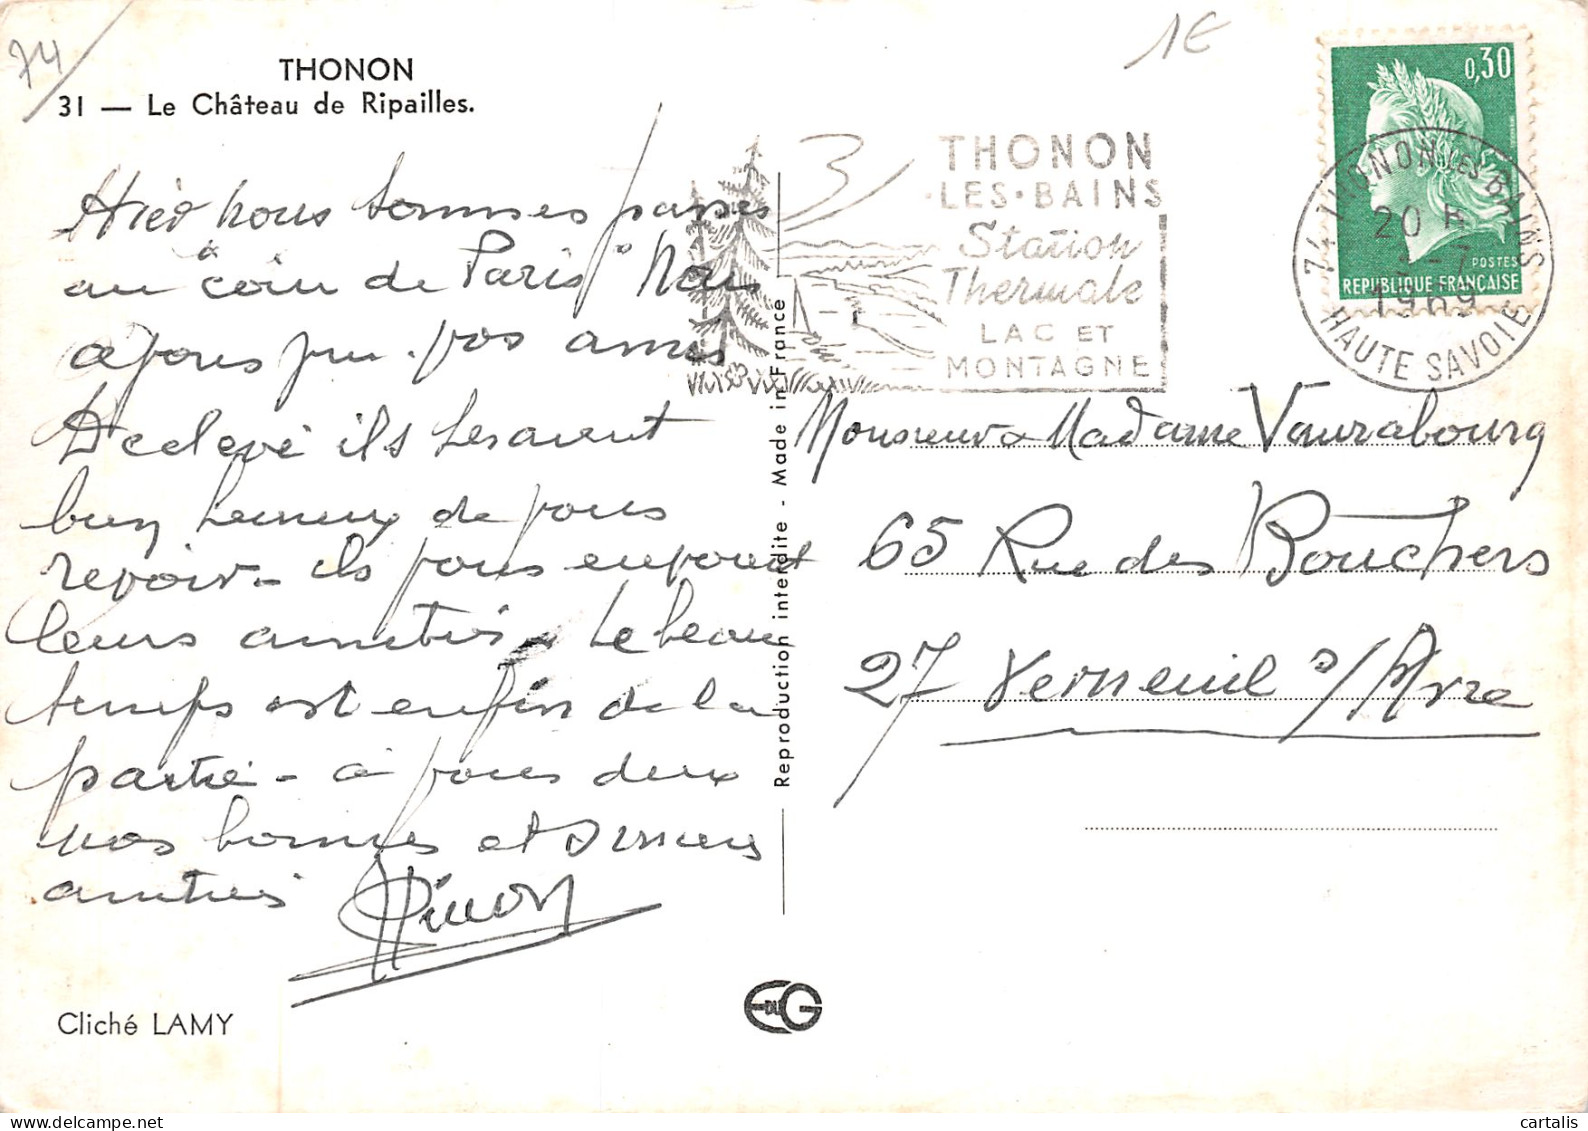 74
1€
THONON
31 — Le Château de Ripailles.
Hier nous sommes passés
au "coin de Paris" Nous
avons vu vos amis
Declevé ils seraient
bien heureux de vous
revoir - ils vous envoient
leurs amitiés. Le beau
temps est enfin de la
partie - à vous deux
nos bonnes et
amitiés
Cliché LAMY
Reproduction interdite - Made in France
THONON
·LES·BAINS
Station
Thermale
LAC ET
MONTAGNE
0,30
POSTES
REPUBLIQUE FRANÇAISE
74 THONON LES BAINS
20 H
-7
1969
HAUTE SAVOIE
Monsieur & Madame Vaurabourg
65 Rue des Bouchers
27 Verneuil s/Avre
EDUG
cartalis